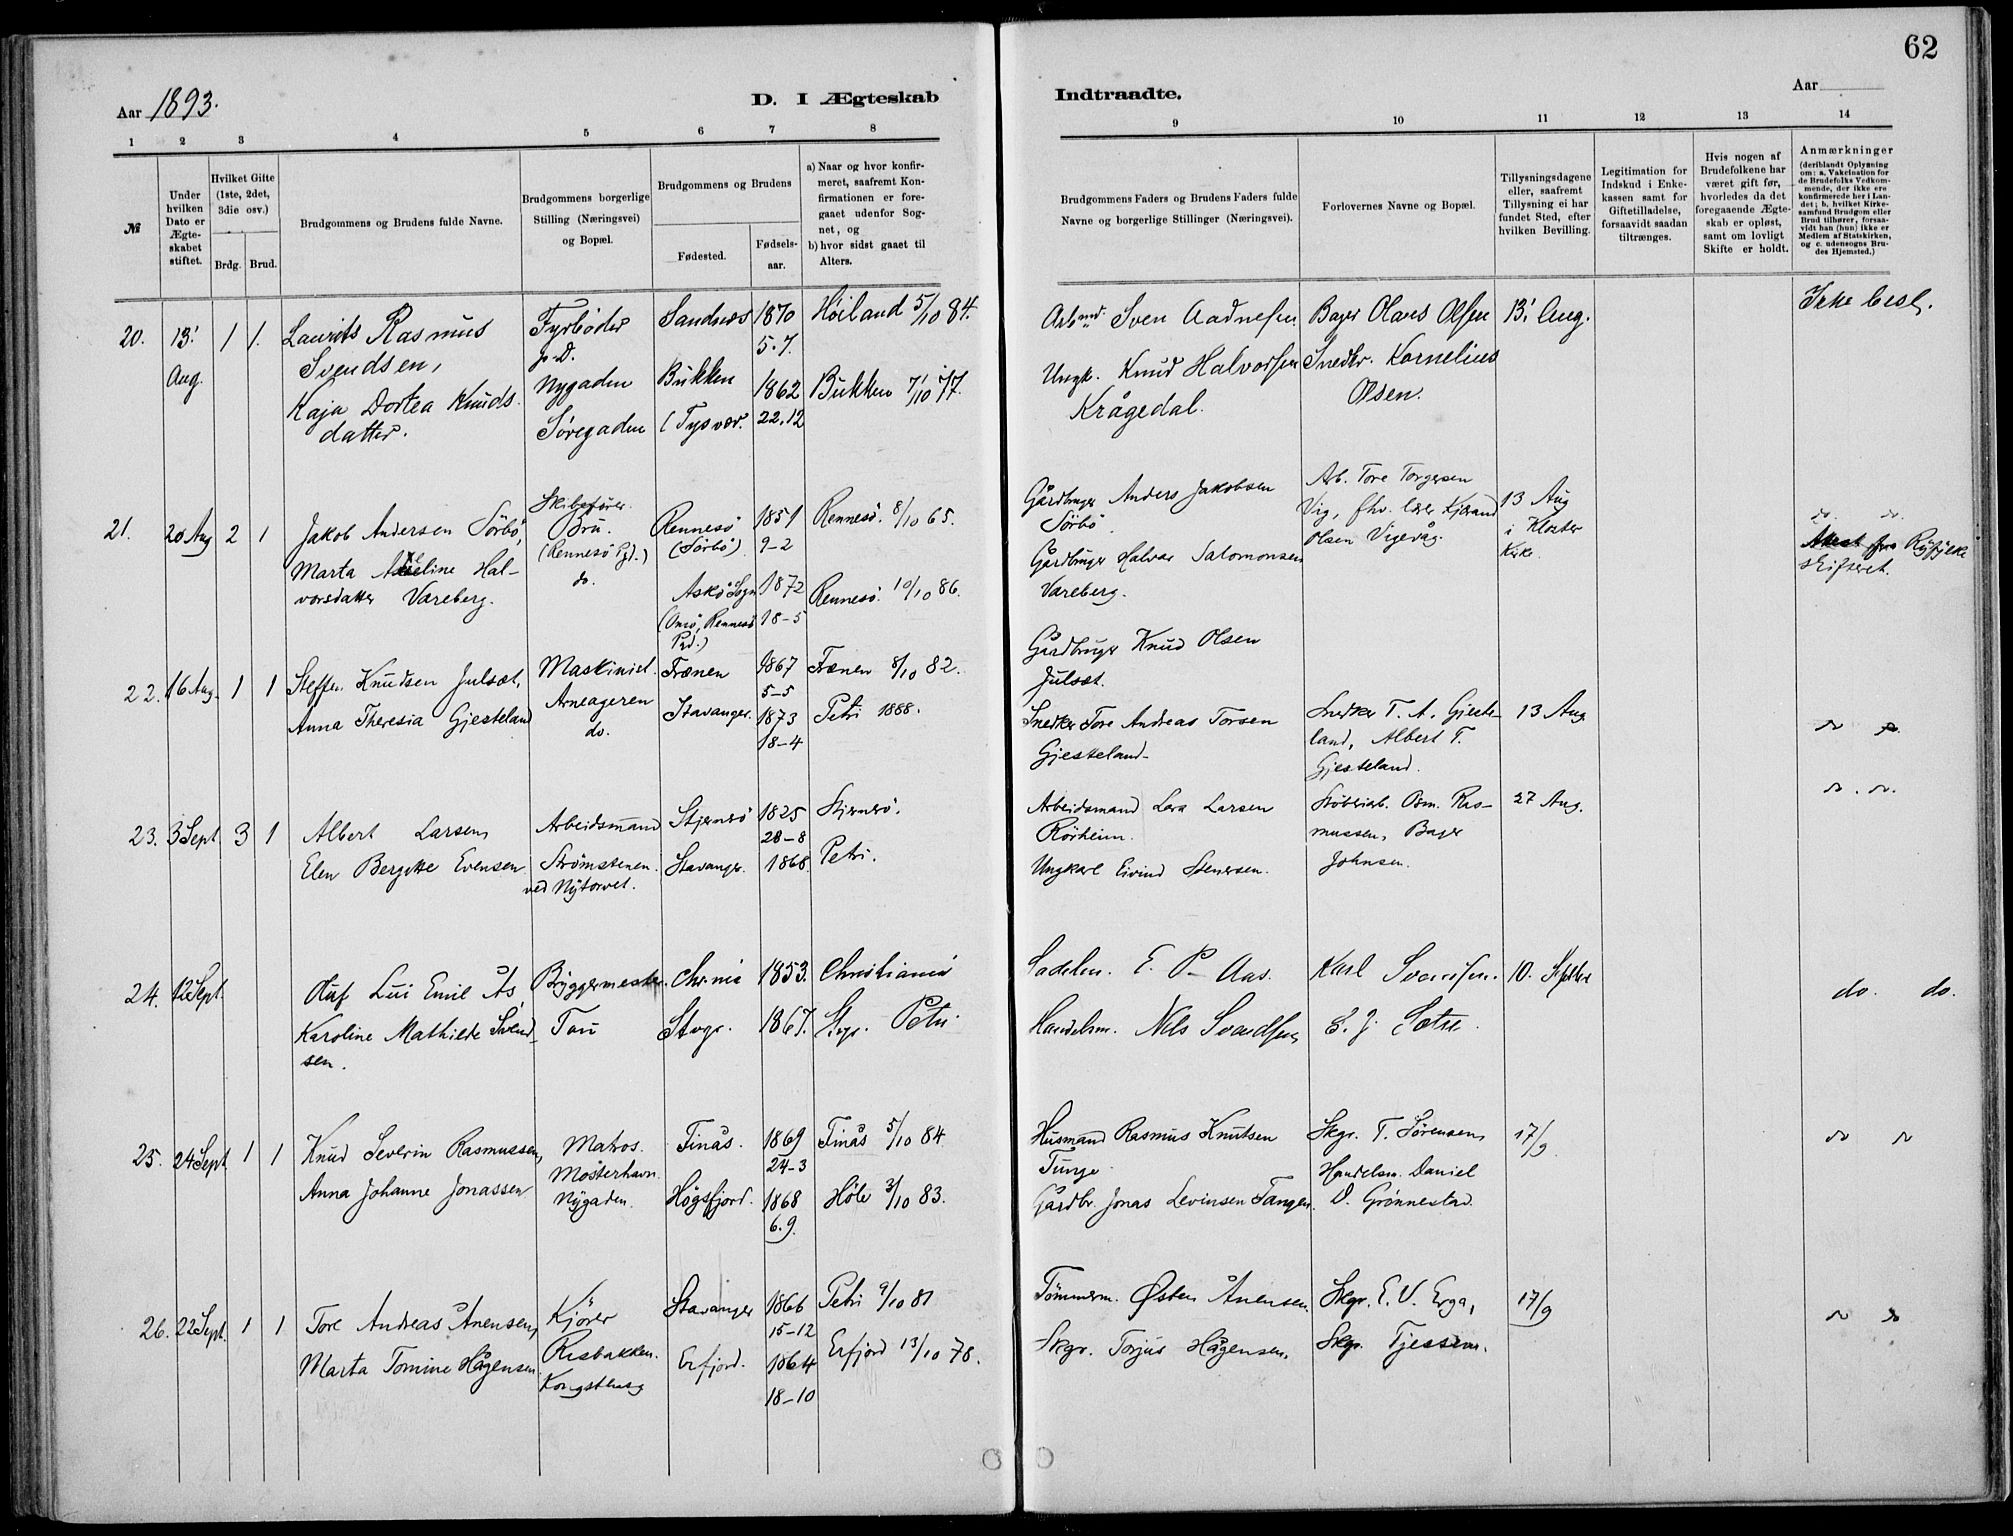 62
Aar 1893.
D. I Ægteskab
Indtraadte.
Aar
1 2 3 4 5 6 7 8
9 10 11 12 13 14
№
Under hvilken Dato er Ægteskabet stiftet.
Hvilket Gifte (1ste, 2det, 3die osv.)
Brdg. Brud.
Brudgommens og Brudens fulde Navne.
Brudgommens borgerlige Stilling (Næringsvei) og Bopæl.
Brudgommens og Brudens
Fødested.
Fødsels-aar.
a) Naar og hvor konfirmeret, saafremt Konfirmationen er foregaaet udenfor Sognet, og
b) hvor sidst gaaet til Alters.
Brudgommens Faders og Brudens Faders fulde Navne og borgerlige Stillinger (Næringsvei).
Forlovernes Navne og Bopæl.
Tillysningsdagene eller, saafremt Tillysning ei har fundet Sted, efter hvilken Bevilling.
Legitimation for Indskud i Enkekassen samt for Giftetilladelse, forsaavidt saadan tiltrænges.
Hvis nogen af Brudefolkene har været gift før, hvorledes da det foregaaende Ægteskab er opløst, samt om lovligt Skifte er holdt.
Anmærkninger
(deriblandt Oplysning om: a. Vakcination for de Brudefolks Vedkommende, der ikke ere konfirmerede her i Landet; b. hvilket Kirkesamfund Brudgom eller Brud tilhører, forsaavidt han (hun) ikke er Medlem af Statskirken, og c. udensogns Brudes Hjemsted.)
20. 13' Aug. 1 1.
Laurits Rasmus
Svendsen,
Kaja Dortea Knuds-
datter.
Fyrbøder
Nygaden
Søregaden
Sandnes
Bukken
(Tysvær.
1870
5.7.
1862
22.12
Høiland 5/10 84.
Bukken 7/10 77.
Arbmd. Sven Aadnesen
Ungk. Knud Halvorsen
Krågedal.
Bager Olaves Olsen
Snedkr. Kornelius
Olsen.
13' Aug.
Ikke besl.
21. 20 Aug 2 1
Jakob Andersen Sörbö,
Marta Aseline Hal-
vorsdatter Vareberg.
Skibsfører
Bru.
(Rennesö Pgd.)
do.
Rennesö
(Sörbö)
Askö Sogn
(Omsö, Rennesö
Pgd.)
1851
9-2
1872
18-5
Rennesö. 8/10 65.
Rennesö. 10/10 86.
Gårdbruger Anders Jakobsen
Sörbö
Gårdbruger Halvor Salomonsen
Vareberg.
Arb. Tore Torgersen
Vig, fhv. lærer Kjærand
Olsen Vigevåg.
13 Aug
i Kloster
Kirke
do. do.
Attest fra Ryfylke
skifteret.
22. 16 Aug. 1 1
Steffen Knudsen Julsæt,
Anna Theresia Gjesteland
Maskinist.
Arneageren
do.
Frænen
Stavanger.
1867
5-5
1873
18-4
Frænen 8/10 82.
Petri 1888.
Gårdbruger Knud Olsen
Julsæt.
Snedker Tore Andreas Torsen
Gjesteland
Snedker T. A. Gjeste-
land, Albert T.
Gjesteland.
13 Aug
do do
23. 3 Sept 3 1
Albert Larsen,
Elen Bergitte Evensen
Arbeidsmand
Strømstenen.
ved Nytorvet.
Stjernerö
Stavanger.
1825
28-8
1868.
Stjernerö.
Petri.
Arbeidsmand Lars Larsen
Rörheim.
Ungkarl Eivind Stenersen.
Støberiarb. Osm. Ras-
mussen, Bager
Johnsen.
27 Aug.
do. do.
24. 12 Sept.
Oluf Lui Emil Ås,
Karoline Mathilde Svend-
sen.
Bryggermester.
Tau
Chr.nia
Stvgr.
1853.
1867.
Christiania
Stvgr. Petri.
Sadelm. E. P. Aas.
Handelsm. Nils Svendsen,
Karl Svendsen.
E. J. Sætre.
10. Septbr
do. do.
25. 24 Sept 1 1
Knud Severin Rasmussen,
Anna Johanne Jonassen
Matros.
Mosterhavn.
Nygaden.
Finås.
Høgsfjord.
1869
24-3
1868
6.9.
Finås 5/10 84
Høle 3/10 83.
Husmand Rasmus Knutsen
Tunge.
Gårdbr. Jonas Levinsen Tangen.
Skgr. T. Sörensen,
Handelsm. Daniel
D. Grønnestad.
17/9.
do do
26. 22 Sept. 1 1
Tore Andreas Ånensen,
Marta Tomine Hågensen
Kjører
Risbakken.
Kongsberg
Stavanger
Erfjord.
1866
15-12
1864
18-10
Petri 9/10 81
Erfjord 13/10 78.
Tömmerm. Østen Ånensen.
Skgr. Torjus Hågensen.
Skgr. E. V. Erga,
Skgr. Tjessem.
17/9
do do